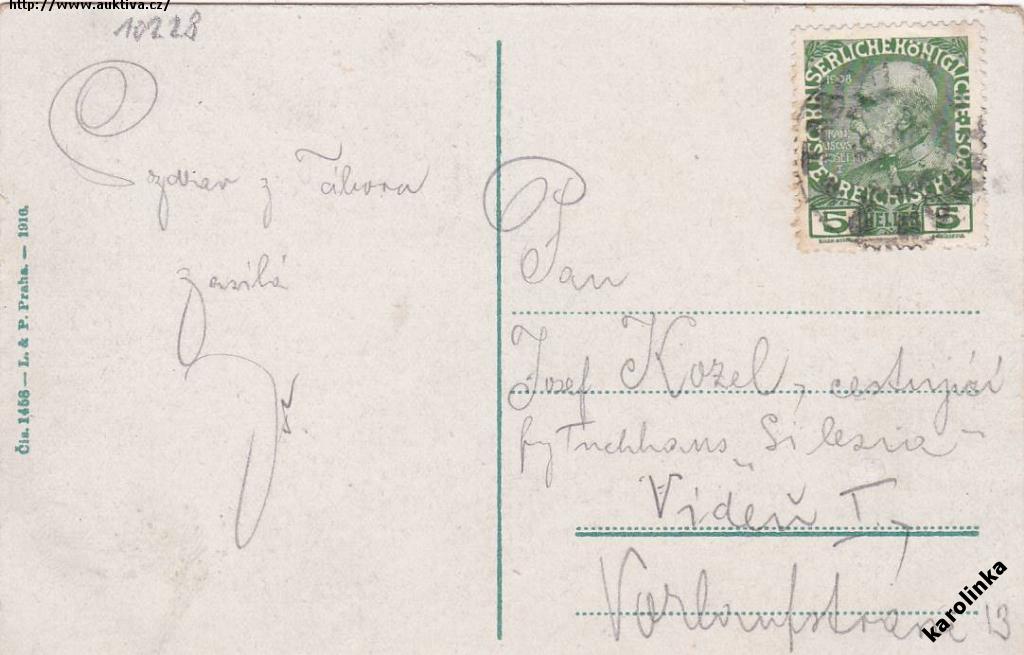 http://www.auktiva.cz/
10228
Pozdrav z Tábora
zasílá
Čís. 1458 — L. & P. Praha. — 1916.
1908
KAISERLICHE KÖNIGLICHE ÖSTERREICHISCHE
5 HELLER 5
Pan
Josef Kozel, cestující
fy Tuchhaus „Silesia"
Vídeň I.,
13
karolinka